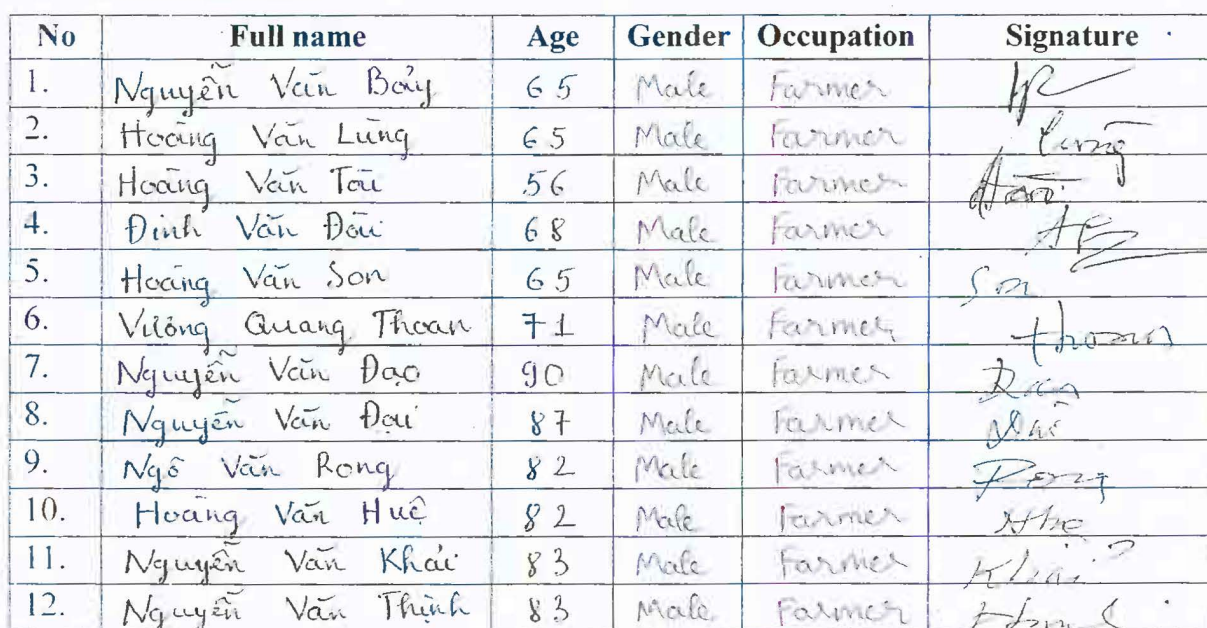 No Full name Age Gender Occupation Signature
1. Nguyễn Văn Bảy 65 Male Farmer
2. Hoàng Văn Lừng 65 Male Farmer Lừng
3. Hoàng Văn Tài 56 Male Farmer
4. Đinh Văn Đài 68 Male Farmer
5. Hoàng Văn Son 65 Male Farmer Son
6. Vương Quang Thoan 71 Male Farmer Thoan
7. Nguyễn Văn Đạo 90 Male Farmer
8. Nguyễn Văn Đại 87 Male Farmer
9. Ngô Văn Rong 82 Male Farmer Rong
10. Hoàng Văn Huê 82 Male Farmer
11. Nguyễn Văn Khải 83 Male Farmer Khải
12. Nguyễn Văn Thịnh 83 Male Farmer